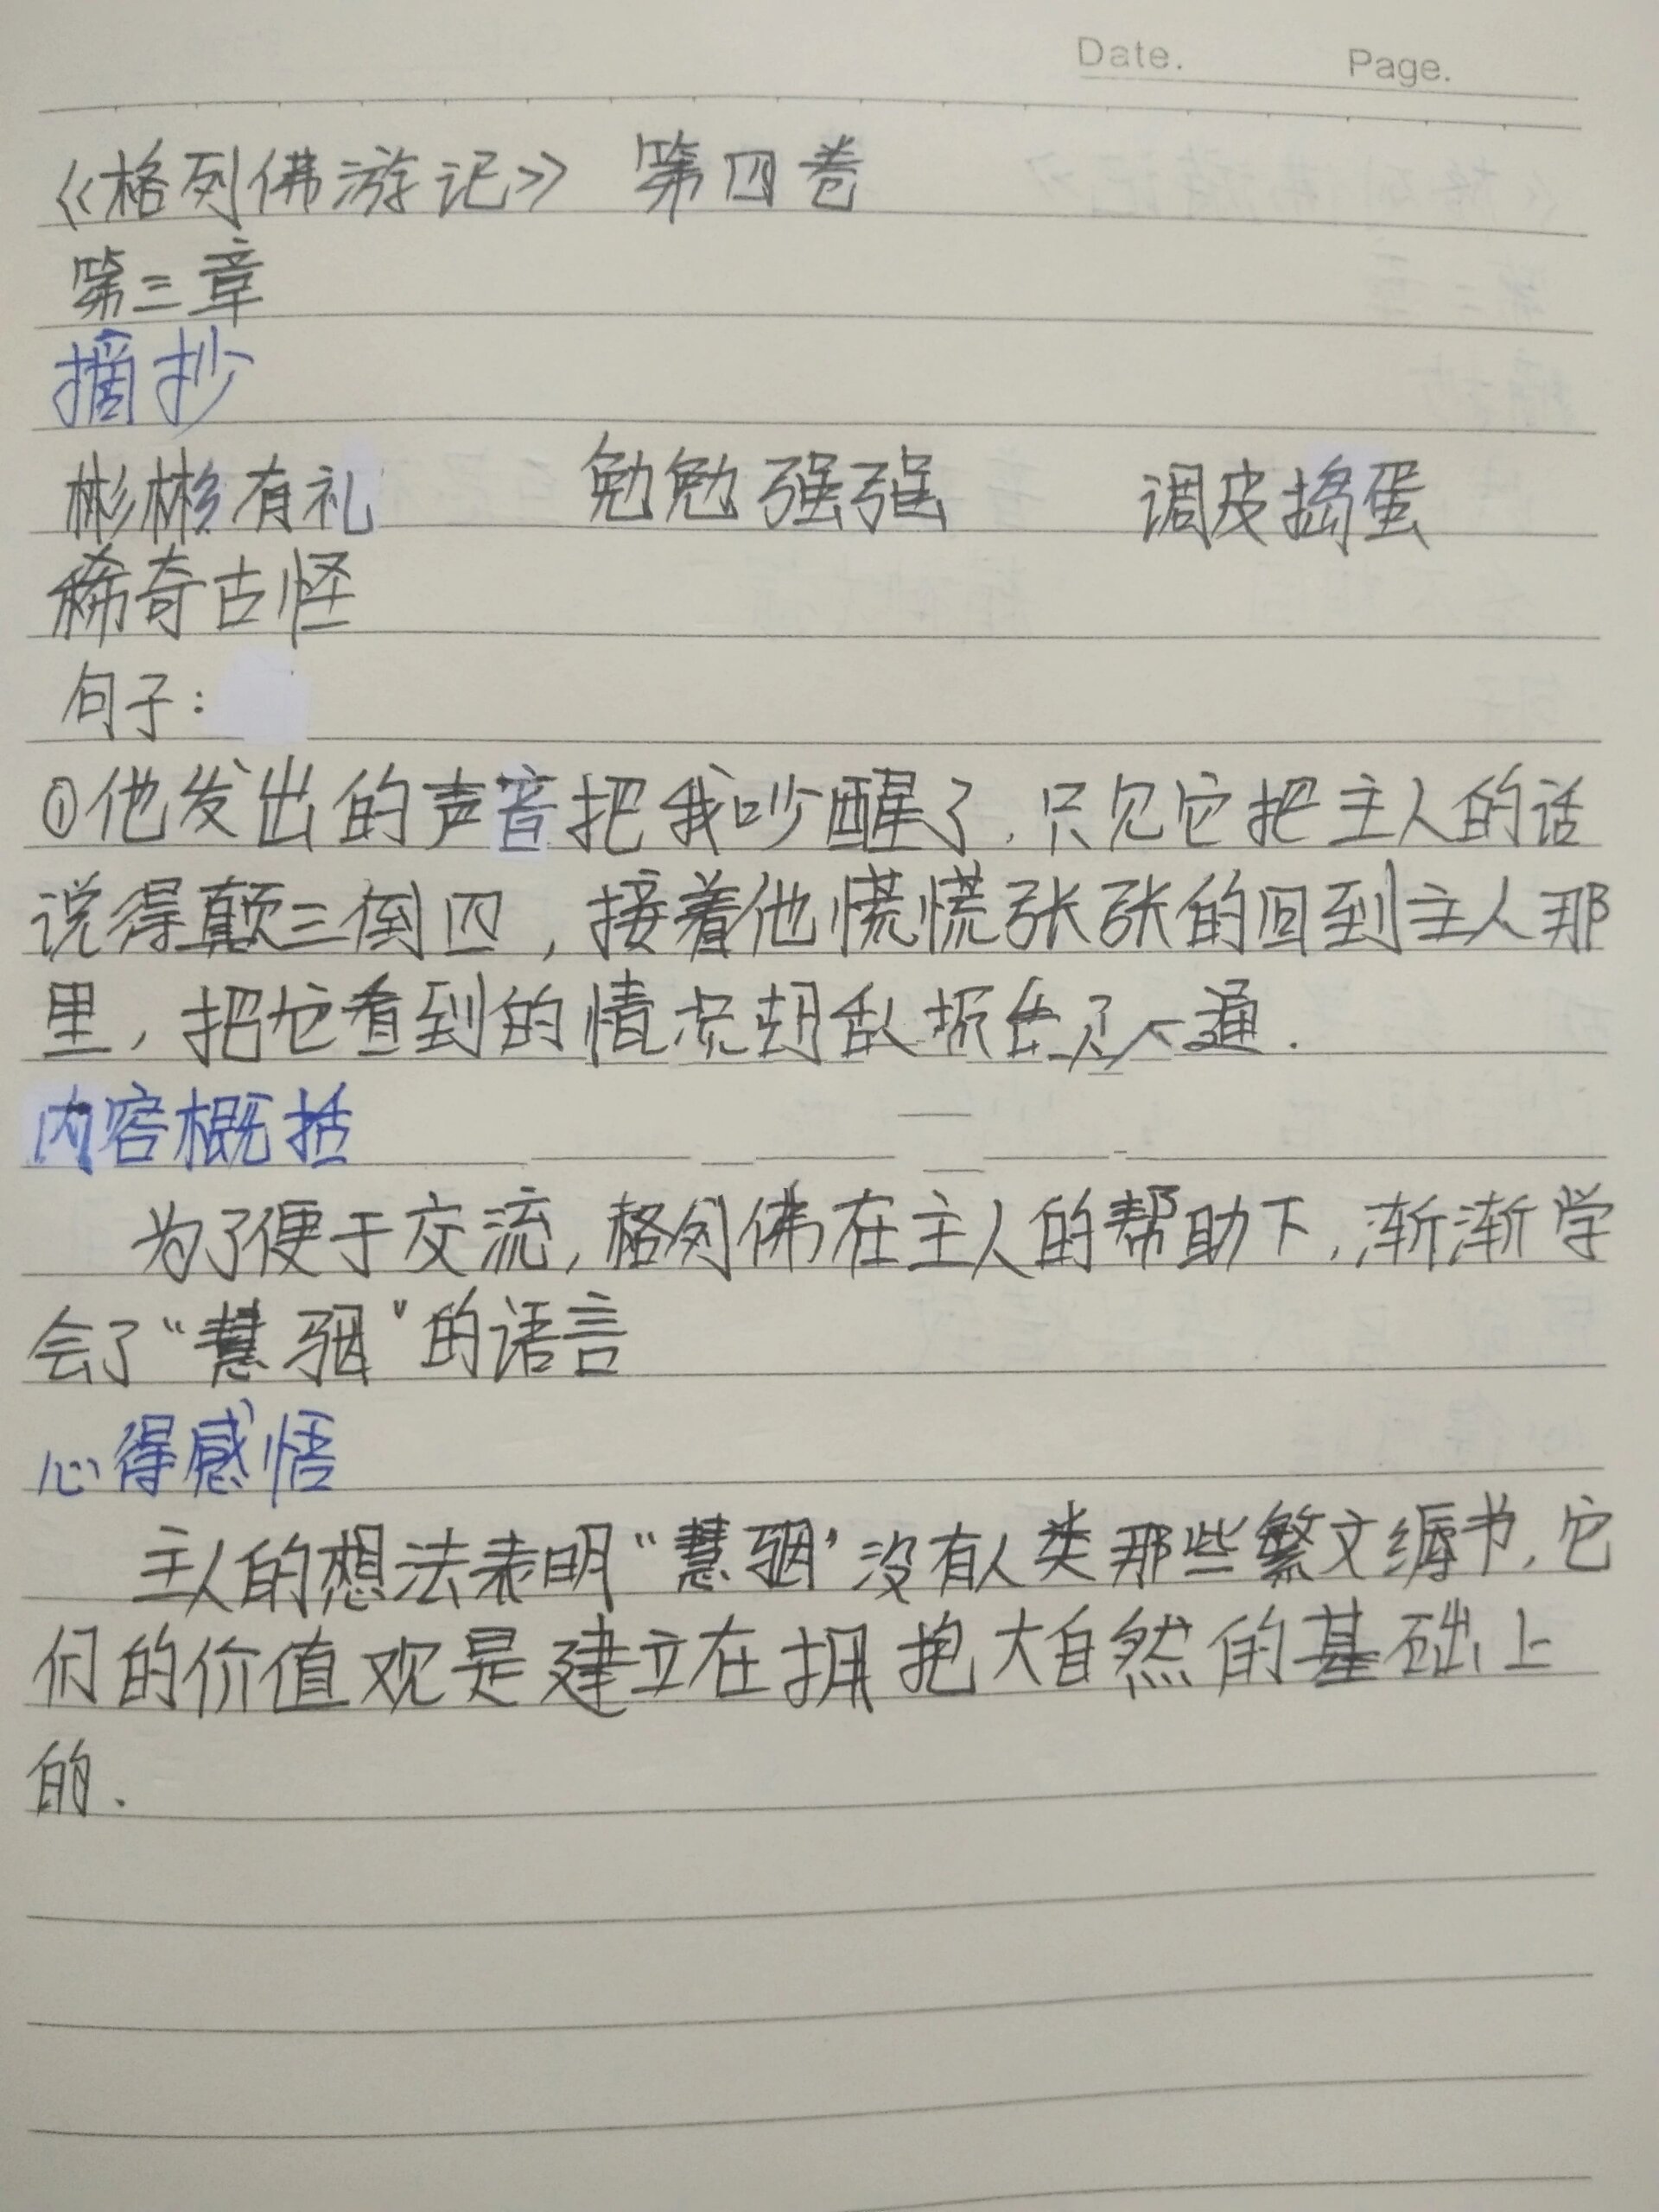 Date. Page.
《格列佛游记》 第四卷
第三章
摘抄
彬彬有礼 勉勉强强 调皮捣蛋
稀奇古怪
句子：
①他发出的声音把我吵醒了，只见它把主人的话
说得颠三倒四，接着他慌慌张张的回到主人那
里，把它看到的情况胡乱报告了一通．
内容概括
为了便于交流，格列佛在主人的帮助下，渐渐学
会了“慧骃”的语言
心得感悟
主人的想法表明“慧骃’没有人类那些繁文缛节，它
们的价值观是建立在拥抱大自然的基础上
的．